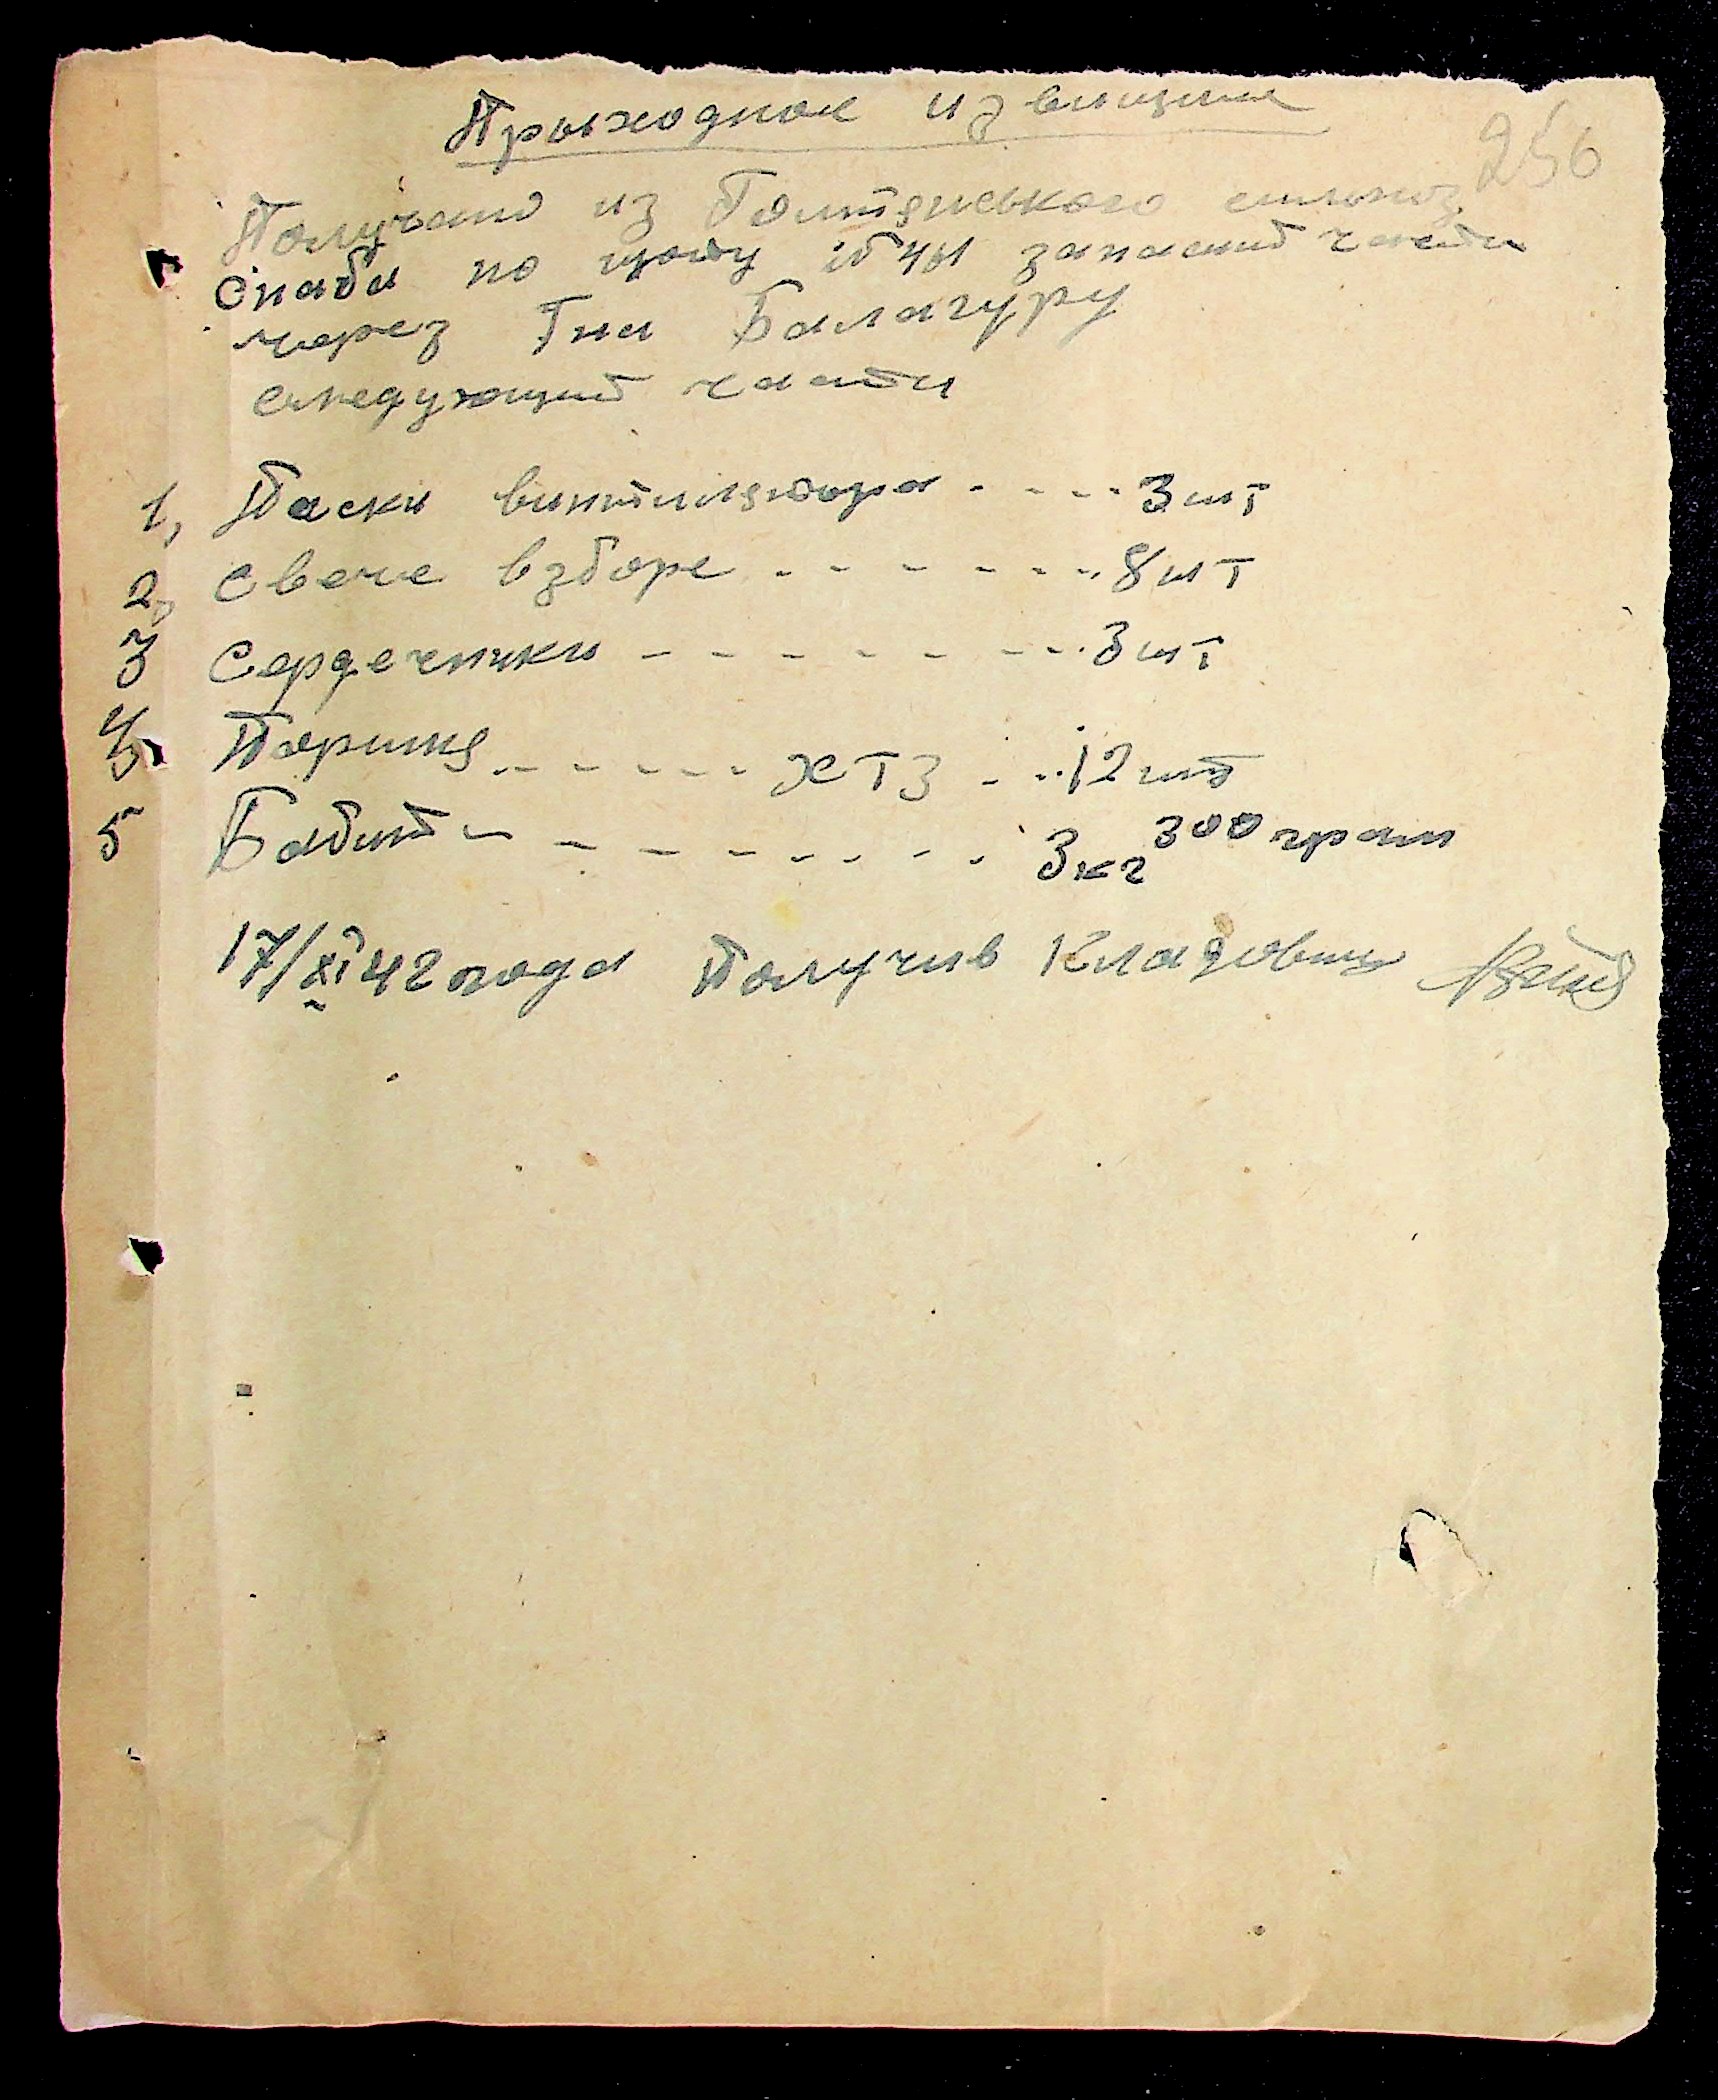 Прыходное извищение
256
Получено из Голтянського сильхоз
снаба по щоту № 41 запасних части
через Гна Балагуру
следующие части
1, Паски винтилятора - - - - 3 шт
2, Свече взборе - - - - - - - 8 шт
3 Сердечники - - - - - - - - 3 шт
4, Поршня - - - - - ХТЗ - - - 12 шт
5 Бабит - - - - - - - - 3 кг 300 грам
17/XI 42 года Получив Кладовщ